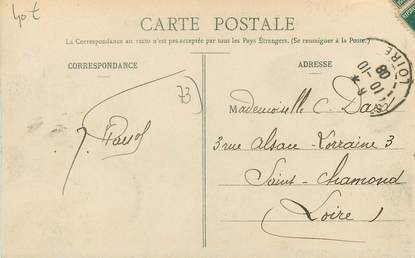 40 €
CARTE POSTALE
La Correspondance au recto n'est pas acceptée par tous les Pays Étrangers. (Se renseigner à la Poste.)
CORRESPONDANCE
ADRESSE
LOIRE
10-10
08
73
Mademoiselle C. Dard
3 rue Alsace-Lorraine 3
Saint-Chamond
Loire